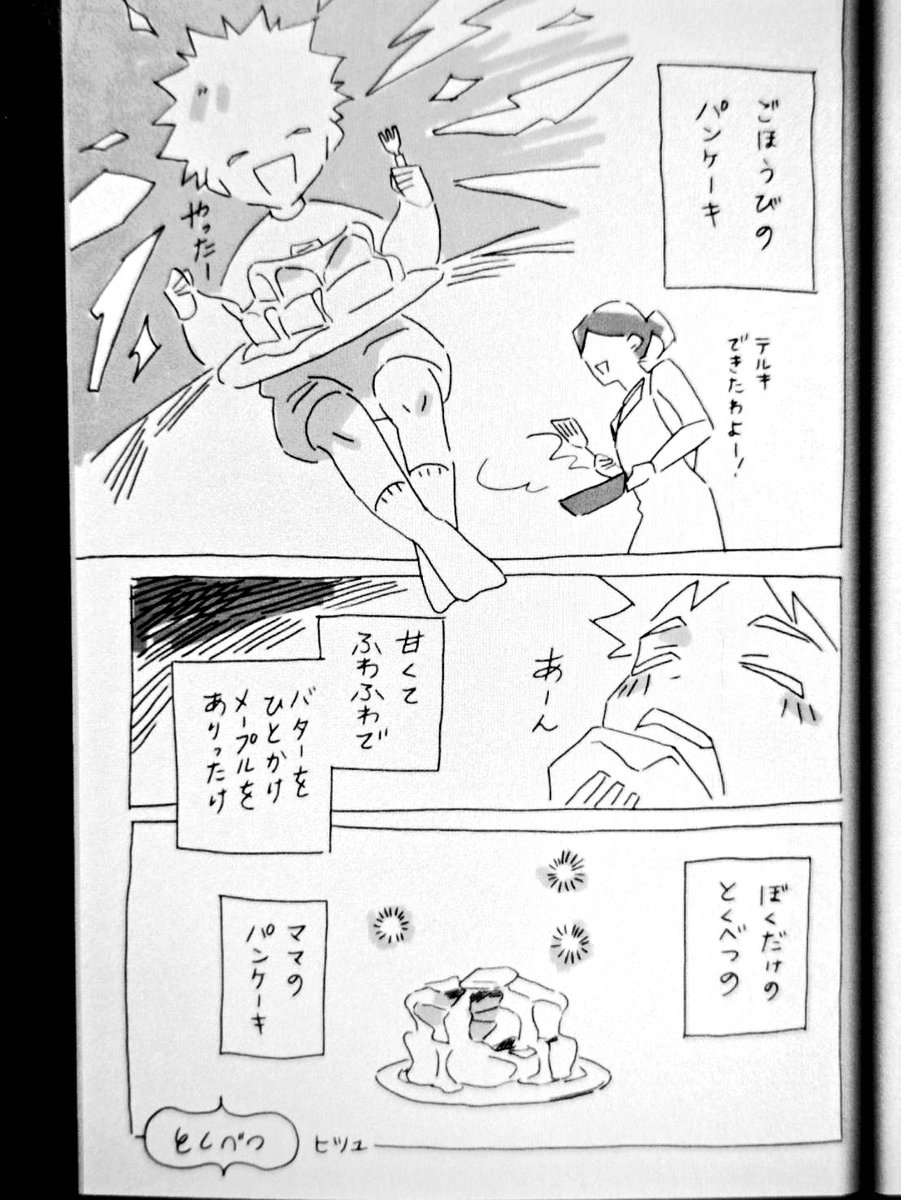 ごほうびの
パンケーキ
テルキ
できたわよー！
やったー
あーん
甘くて
ふわふわで
バターを
ひとかけ
メープルを
ありったけ
ぼくだけの
とくべつの
ママの
パンケーキ
とくべつ
ヒツユ